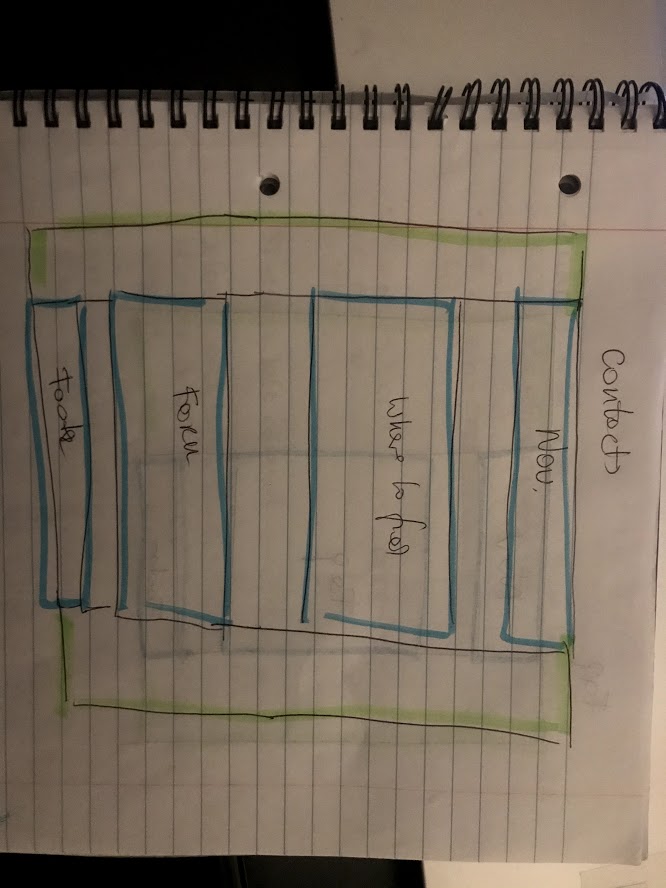 Contacts
Nav.
Where to find
Form
Footer